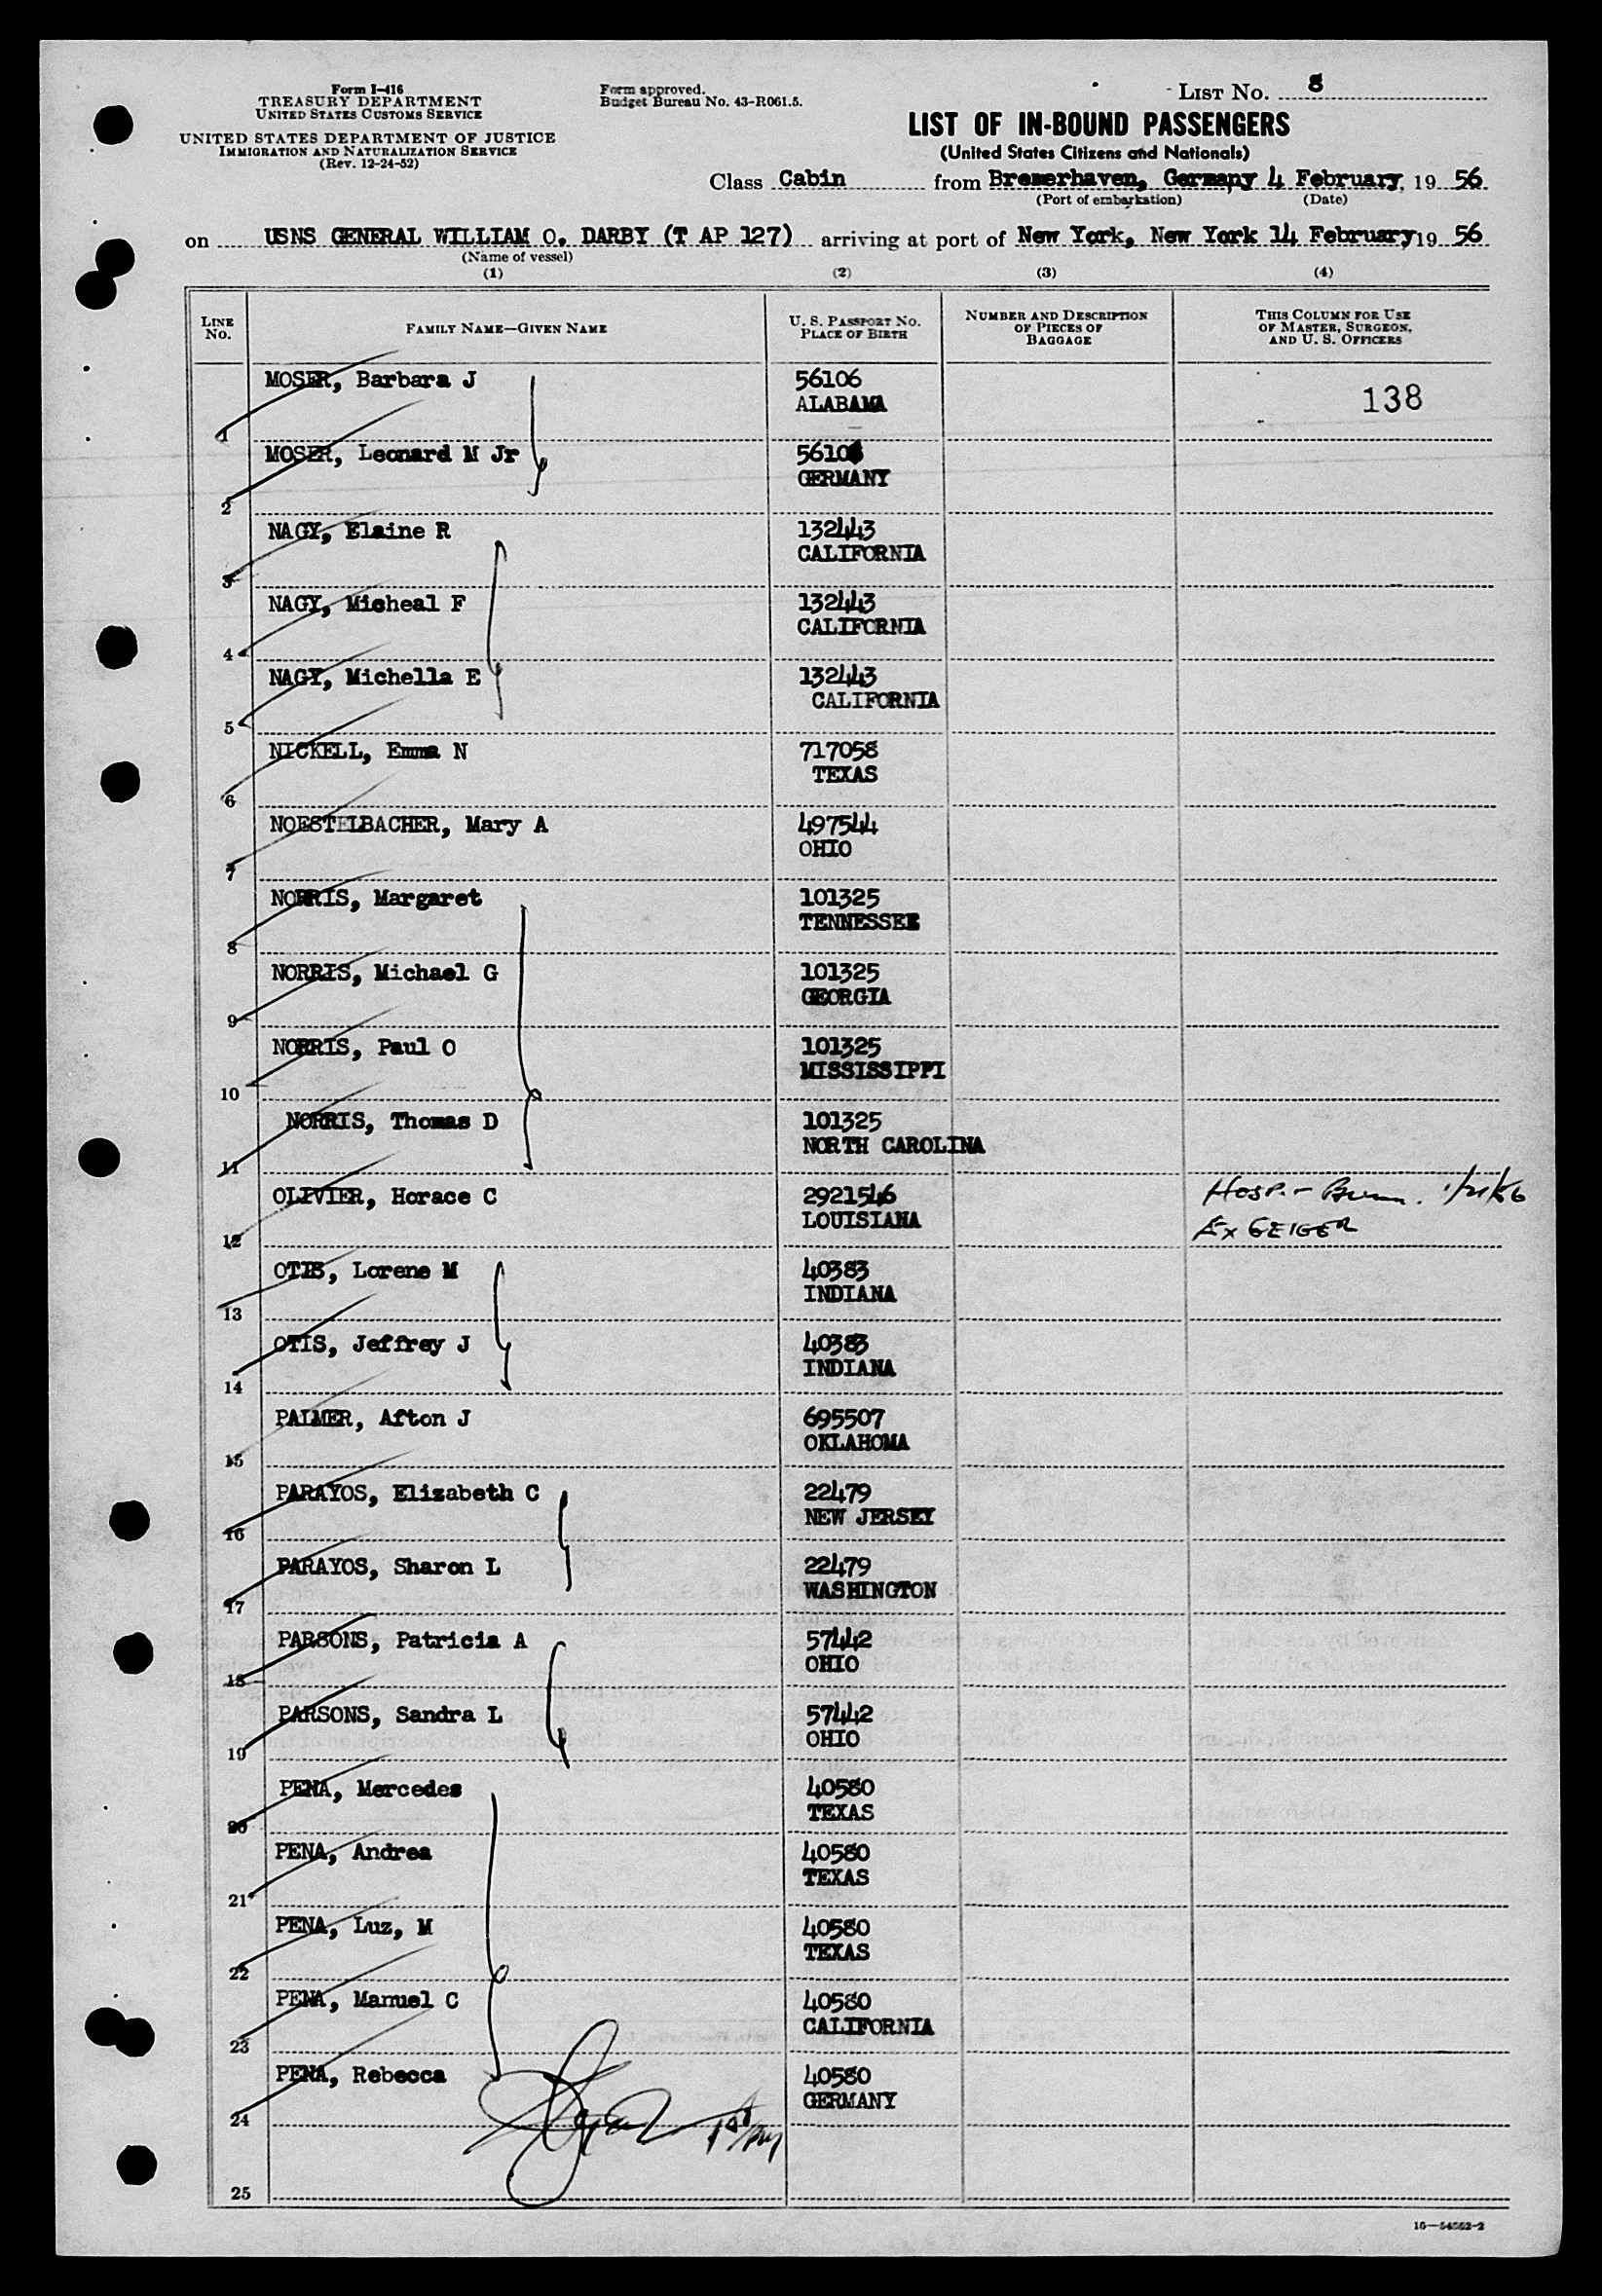 Form I-416
TREASURY DEPARTMENT
UNITED STATES CUSTOMS SERVICE
UNITED STATES DEPARTMENT OF JUSTICE
IMMIGRATION AND NATURALIZATION SERVICE
(Rev. 12-24-52)
Form approved.
Budget Bureau No. 43-R061.5.
LIST No. 8
LIST OF IN-BOUND PASSENGERS
(United States Citizens and Nationals)
Class Cabin from Bremerhaven, Germany 4 February, 19 56
(Port of embarkation) (Date)
on USNS GENERAL WILLIAM O. DARBY (T AP 127) arriving at port of New York, New York 14 February 19 56
(Name of vessel)
(1) (2) (3) (4)
LINE No. FAMILY NAME—GIVEN NAME U. S. PASSPORT No. PLACE OF BIRTH NUMBER AND DESCRIPTION OF PIECES OF BAGGAGE THIS COLUMN FOR USE OF MASTER, SURGEON, AND U. S. OFFICERS
1 MOSER, Barbara J 56106 ALABAMA 138
2 MOSER, Leonard M Jr 56106 GERMANY
3 NAGY, Elaine R 132443 CALIFORNIA
4 NAGY, Micheal F 132443 CALIFORNIA
5 NAGY, Michella E 132443 CALIFORNIA
6 NICKELL, Emma N 717058 TEXAS
7 NOESTELBACHER, Mary A 497544 OHIO
8 NORRIS, Margaret 101325 TENNESSEE
9 NORRIS, Michael G 101325 GEORGIA
10 NORRIS, Paul O 101325 MISSISSIPPI
11 NORRIS, Thomas D 101325 NORTH CAROLINA
12 OLIVIER, Horace C 2921546 LOUISIANA Hosp.- Ex GEIGER
13 OTIS, Lorene M 40383 INDIANA
14 OTIS, Jeffrey J 40383 INDIANA
15 PALMER, Afton J 695507 OKLAHOMA
16 PARAYOS, Elizabeth C 22479 NEW JERSEY
17 PARAYOS, Sharon L 22479 WASHINGTON
18 PARSONS, Patricia A 57442 OHIO
19 PARSONS, Sandra L 57442 OHIO
20 PENA, Mercedes 40580 TEXAS
21 PENA, Andrea 40580 TEXAS
22 PENA, Luz, M 40580 TEXAS
23 PENA, Manuel C 40580 CALIFORNIA
24 PENA, Rebecca 40580 GERMANY
25
16—54552-2